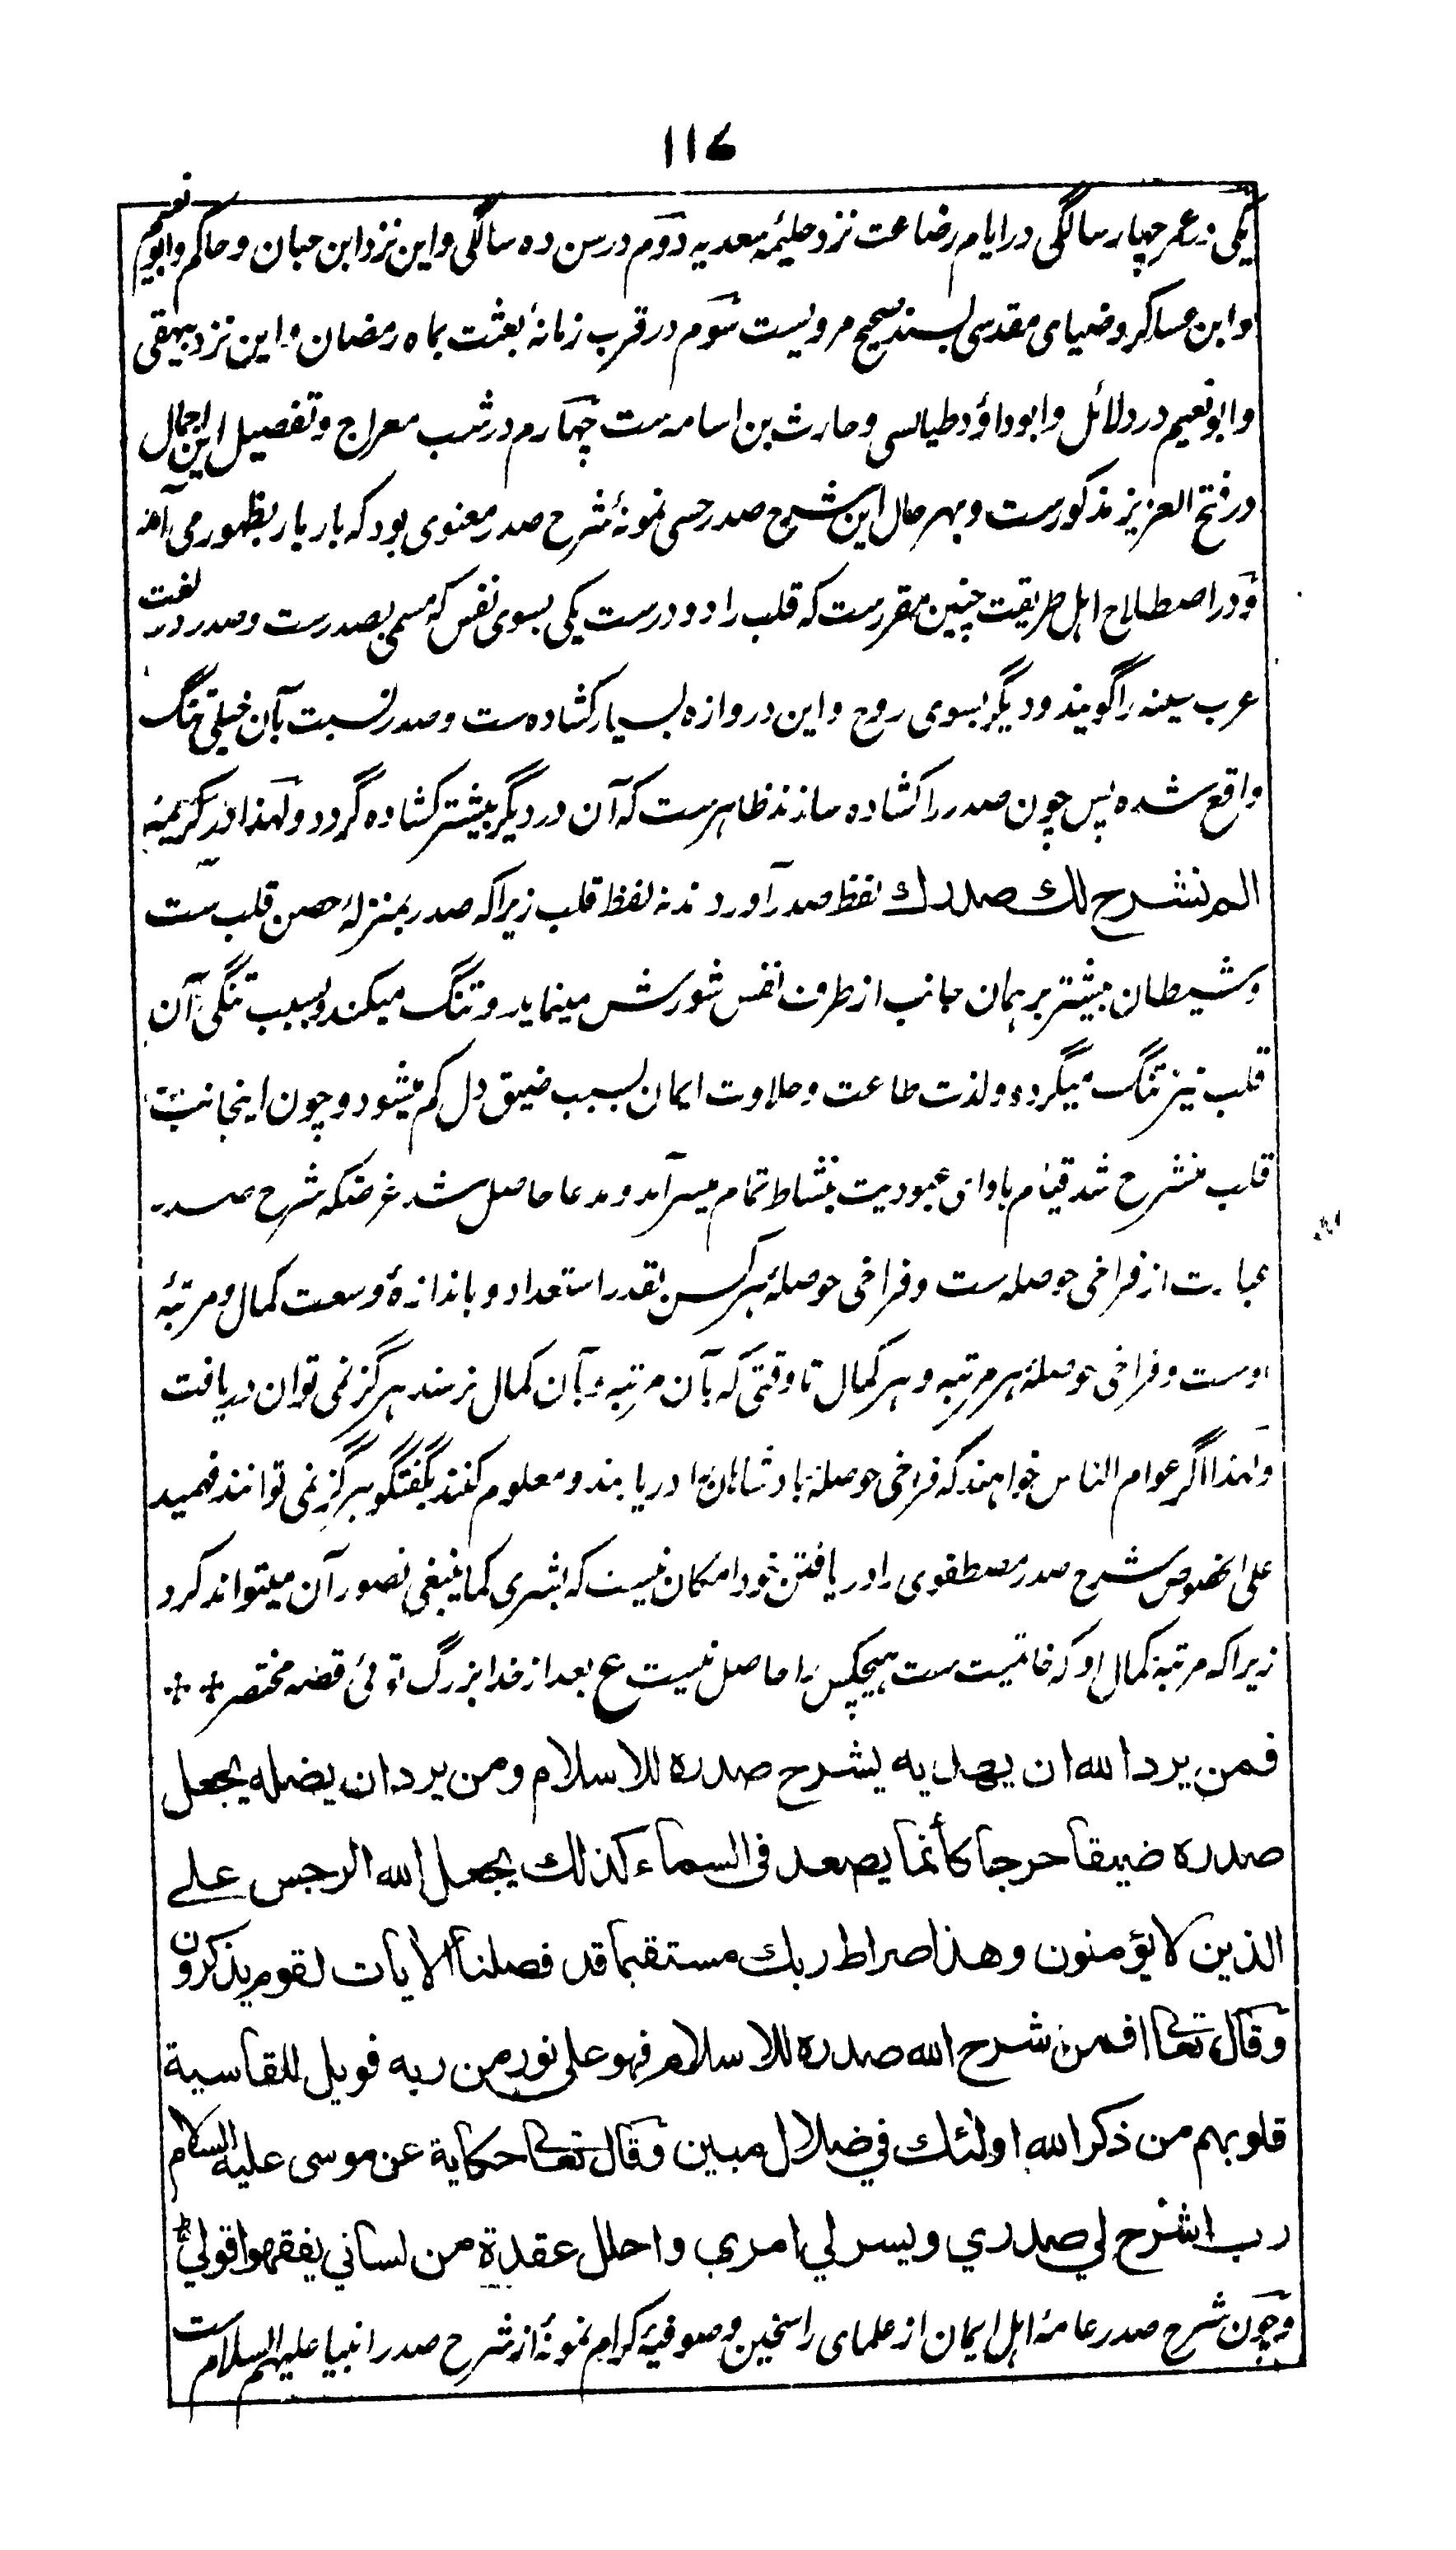 ۱۱۶
یکی در عمر چهار سالگی در ایام رضاعت نزد حلیمهٔ سعدیه دوم در سن ده سالگی و این نزد ابن حبان و حاکم و ابو نعیم
و ابن عساکر و ضیای مقدسی بسند صحیح مرویست سوم در قرب زمانهٔ بعثت بماه رمضان و این نزد بیهقی
و ابو نعیم در دلائل و ابو داؤد طیالسی و حارث بن اسامه ست چهارم در شب معراج و تفصیل این اجمال
در فتح العزیز مذکورست و بهر حال این شرح صدر حسی نمونهٔ شرح صدر معنوی بود که بار بار بظهور می آمد
و در اصطلاح اهل طریقت چنین مقررست که قلب را دو درست یکی بسوی نفس که مسمی بصدرست و صدر در لغت
عرب سینه را گویند و دیگر بسوی روح و این دروازه بسیار کشاده ست و صدر نسبت بآن خیلی تنگ
واقع شده پس چون صدر را کشاده سازند ظاهرست که آن در دیگر بیشتر کشاده گردد و لهذا در کریمهٔ
الم نشرح لك صدرك لفظ صدر آوردند نه لفظ قلب زیرا که صدر بمنزلهٔ حصن قلب ست
و شیطان بیشتر بر همان جانب از طرف نفس شورش مینماید و تنگ میکند و بسبب تنگی آن
قلب نیز تنگ میگردد و لذت طاعت و حلاوت ایمان بسبب ضیق دل کم میشود و چون اینجانب
قلب منشرح شد قیام باوای عبودیت بنشاط تمام میسر آمد و مدعا حاصل شد غرضکه شرح صدر
عبارت از فراخی حوصله ست و فراخی حوصلهٔ هر کس بقدر استعداد و باندازهٔ وسعت کمال و مرتبهٔ
اوست و فراخی حوصلهٔ هر مرتبه و هر کمال تا وقتی که بآن مرتبه و بآن کمال نرسند هرگز نمی توان دریافت
و لهذا اگر عوام الناس خواهند که فراخی حوصلهٔ بادشاهان را دریابند و معلوم کنند بگفتگو هرگز نمی توانند فهمید
علی الخصوص شرح صدر مصطفوی را دریافتن خود امکان نیست که بشری کما ینبغی تصور آن میتواند کرد
زیرا که مرتبهٔ کمال او که خاتمیت ست هیچکس را حاصل نیست ع بعد از خدا بزرگ توئی قصه مختصر
فمن يرد الله ان يهديه يشرح صدره للاسلام ومن يرد ان يضله يجعل
صدره ضيقا حرجا كأنما يصعد في السماء كذلك يجعل الله الرجس على
الذين لا يؤمنون وهذا صراط ربك مستقيما قد فصلنا الآيات لقوم يذكرون
وقال تعالى افمن شرح الله صدره للاسلام فهو على نور من ربه فويل للقاسية
قلوبهم من ذكر الله اولئك في ضلال مبين وقال تعالى حكاية عن موسى عليه السلام
رب اشرح لي صدري ويسر لي امري واحلل عقدة من لساني يفقهوا قولي
و چون شرح صدر عامهٔ اهل ایمان از علمای راسخین و صوفیهٔ کرام نمونهٔ از شرح صدر انبیا علیهم السلام ست